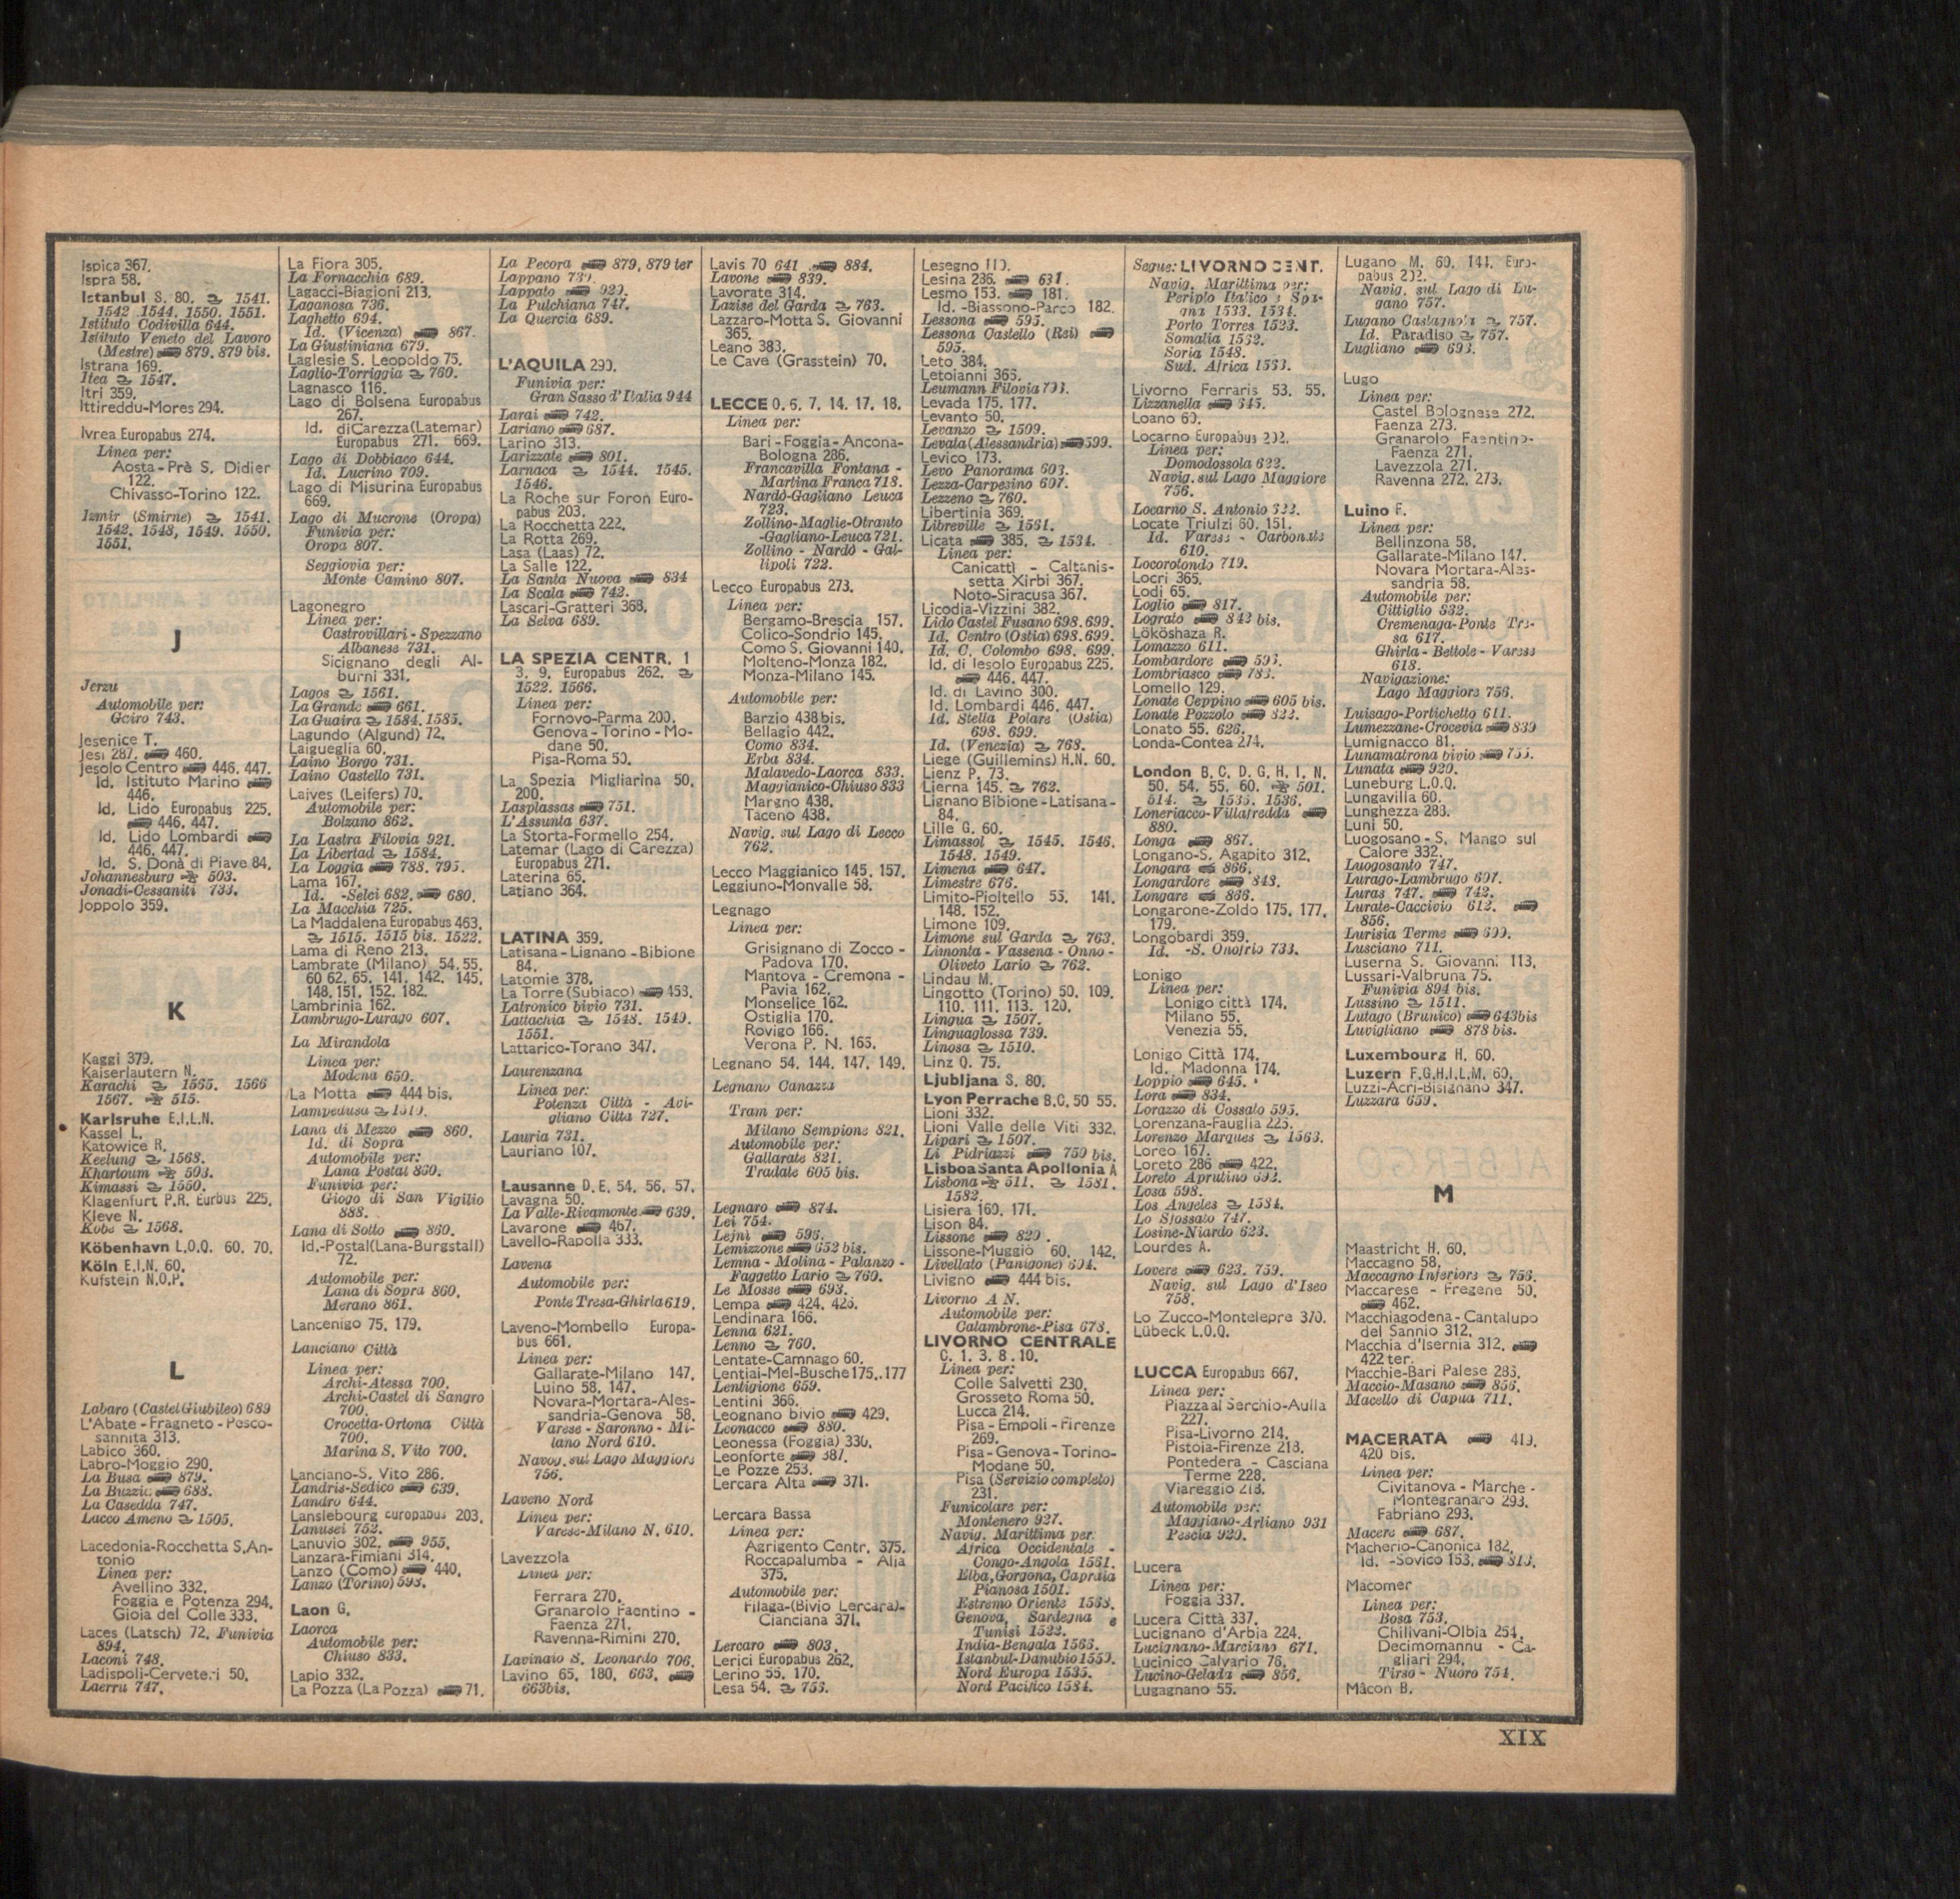 Ispica 367.
Ispra 58.
Istanbul S. 80. 1541.
1542. 1544. 1550. 1551.
Istituto Codivilla 644.
Istituto Veneto del Lavoro
(Mestre) 879, 879 bis.
Istrana 169.
Itea 1547.
Itri 359.
Ittireddu-Mores 294.
Ivrea Europabus 274.
Linea per:
Aosta-Prè S. Didier
122.
Chivasso-Torino 122.
Izmir (Smirne) 1541.
1542. 1548, 1549. 1550.
1551.
J
Jerzu
Automobile per:
Gairo 743.
Jesenice T.
Jesi 287. 460.
Jesolo Centro 446. 447.
Id. Istituto Marino
446.
Id. Lido Europabus 225.
446, 447.
Id. Lido Lombardi
446. 447.
Id. S. Donà di Piave 84.
Johannesburg 503.
Jonadi-Cessaniti 733.
Joppolo 359.
K
Kaggi 379.
Kaiserlautern N.
Karachi 1565. 1566
1567. 515.
Karlsruhe E.I.L.N.
Kassel L.
Katowice R.
Keelung 1568.
Khartoum 503.
Kimassi 1550.
Klagenfurt P.R. Eurbus 225.
Kleve N.
Kobe 1568.
Köbenhavn L.O.Q. 60. 70.
Köln E.I.N. 60.
Kufstein N.O.P.
L
Labaro (Castel Giubileo) 689
L'Abate-Fragneto-Pesco-
sannita 313.
Labico 360.
Labro-Moggio 290.
La Busa 879.
La Buzzia 688.
La Casedda 747.
Lacco Ameno 1505.
Lacedonia-Rocchetta S. An-
tonio
Linea per:
Avellino 332.
Foggia e Potenza 294.
Gioia del Colle 333.
Laces (Latsch) 72. Funivia
894.
Laconi 748.
Ladispoli-Cerveteri 50.
Laerru 747.
La Fiora 305.
La Fornacchia 689.
Lagacci-Biagioni 213.
Laganosa 736.
Laghetto 694.
Id. (Vicenza) 867.
La Giustiniana 679.
Laglesie S. Leopoldo 75.
Laglio-Torriggia 760.
Lagnasco 116.
Lago di Bolsena Europabus
267.
Id. di Carezza (Latemar)
Europabus 271. 669.
Lago di Dobbiaco 644.
Id. Lucrino 709.
Lago di Misurina Europabus
669.
Lago di Mucrone (Oropa)
Funivia per:
Oropa 807.
Seggiovia per:
Monte Camino 807.
Lagonegro
Linea per:
Castrovillari-Spezzano
Albanese 731.
Sicignano degli Al-
burni 331.
Lagos 1561.
La Grande 661.
La Guaira 1584. 1585.
Lagundo (Algund) 72.
Laigueglia 60.
Laino Borgo 731.
Laino Castello 731.
Laives (Leifers) 70.
Automobile per:
Bolzano 862.
La Lastra Filovia 921.
La Libertad 1584.
La Loggia 788. 795.
Lama 167.
Id. -Selci 682. 680.
La Macchia 725.
La Maddalena Europabus 463.
1515. 1515 bis. 1522.
Lama di Reno 213.
Lambrate (Milano) 54.55.
60 62. 65. 141. 142. 145.
148. 151. 152. 182.
Lambrinia 162.
Lambrugo-Lurago 607.
La Mirandola
Linea per:
Modena 650.
La Motta 444 bis.
Lampedusa 1510.
Lana di Mezzo 860.
Id. di Sopra
Automobile per:
Lana Postal 860.
Funivia per:
Giogo di San Vigilio
888.
Lana di Sotto 860.
Id.-Postal (Lana-Burgstall)
72.
Automobile per:
Lana di Sopra 860.
Merano 861.
Lancenigo 75. 179.
Lanciano Città
Linea per:
Archi-Atessa 700.
Archi-Castel di Sangro
700.
Crocetta-Ortona Città
700.
Marina S. Vito 700.
Lanciano-S. Vito 286.
Landris-Sedico 639.
Landro 644.
Lanslebourg europabus 203.
Lanusei 752.
Lanuvio 302. 955.
Lanzara-Fimiani 314.
Lanzo (Como) 440.
Lanzo (Torino) 598.
Laon G.
Laorca
Automobile per:
Chiuso 833.
Lapio 332.
La Pozza (La Pozza) 71.
La Pecora 879, 879 ter
Lappano 739.
Lappato 929.
La Pulchiana 747.
La Quercia 689.
L'AQUILA 290.
Funivia per:
Gran Sasso d'Italia 944
Larai 742.
Lariano 687.
Larino 313.
Larizzate 801.
Larnaca 1544. 1545.
1546.
La Roche sur Foron Euro-
pabus 203.
La Rocchetta 222.
La Rotta 269.
Lasa (Laas) 72.
La Salle 122.
La Santa Nuova 834
La Scala 742.
Lascari-Gratteri 368.
La Selva 689.
LA SPEZIA CENTR. 1
3. 9. Europabus 262.
1522. 1566.
Linea per:
Fornovo-Parma 200.
Genova-Torino-Mo-
dane 50.
Pisa-Roma 50.
La Spezia Migliarina 50.
200.
Lasplassas 751.
L'Assunta 637.
La Storta-Formello 254.
Latemar (Lago di Carezza)
Europabus 271.
Laterina 65.
Latiano 364.
LATINA 359.
Latisana-Lignano-Bibione
84.
Latomie 378.
La Torre (Subiaco) 453.
Latronico bivio 731.
Lattachia 1548. 1549.
1551.
Lattarico-Torano 347.
Laurenzana
Linea per:
Potenza Città - Avi-
gliano Città 727.
Lauria 731.
Lauriano 107.
Lausanne D. E. 54. 56. 57.
Lavagna 50.
La Valle-Rivamonte 639.
Lavarone 467.
Lavello-Rapolla 333.
Lavena
Automobile per:
Ponte Tresa-Ghirla 619.
Laveno-Mombello Europa-
bus 661.
Linea per:
Gallarate-Milano 147.
Luino 58. 147.
Novara-Mortara-Ales-
sandria-Genova 58.
Varese-Saronno-Mi-
lano Nord 610.
Navig. sul Lago Maggiore
756.
Laveno Nord
Linea per:
Varese-Milano N. 610.
Lavezzola
Linea per:
Ferrara 270.
Granarolo Faentino -
Faenza 271.
Ravenna-Rimini 270.
Lavinaio S. Leonardo 706.
Lavino 65. 180. 663.
663bis.
Lavis 70 641 884.
Lavone 839.
Lavorate 314.
Lazise del Garda 763.
Lazzaro-Motta S. Giovanni
365.
Leano 383.
Le Cave (Grasstein) 70.
LECCE 0. 6. 7. 14. 17. 18.
Linea per:
Bari-Foggia-Ancona-
Bologna 286.
Francavilla Fontana -
Martina Franca 718.
Nardò-Gagliano Leuca
723.
Zollino-Maglie-Otranto
-Gagliano-Leuca 721.
Zollino - Nardò - Gal-
lipoli 722.
Lecco Europabus 273.
Linea per:
Bergamo-Brescia 157.
Colico-Sondrio 145.
Como S. Giovanni 140.
Molteno-Monza 182.
Monza-Milano 145.
Automobile per:
Barzio 438 bis.
Bellagio 442.
Como 834.
Erba 834.
Malavedo-Laorca 833.
Maggianico-Chiuso 833
Margno 438.
Taceno 438.
Navig. sul Lago di Lecco
762.
Lecco Maggianico 145. 157.
Leggiuno-Monvalle 58.
Legnago
Linea per:
Grisignano di Zocco -
Padova 170.
Mantova - Cremona -
Pavia 162.
Monselice 162.
Ostiglia 170.
Rovigo 166.
Verona P. N. 165.
Legnano 54. 144. 147. 149.
Legnano Canazza
Tram per:
Milano Sempione 821.
Automobile per:
Gallarate 821.
Tradate 605 bis.
Legnaro 874.
Lei 754.
Lejni 596.
Lemizzone 652 bis.
Lemna - Molina - Palanzo -
Faggetto Lario 760.
Le Mosse 693.
Lempa 424. 426.
Lendinara 166.
Lenna 621.
Lenno 760.
Lentate-Camnago 60.
Lentiai-Mel-Busche 175..177
Lentigione 659.
Lentini 366.
Leognano bivio 429.
Leonacco 880.
Leonessa (Foggia) 330.
Leonforte 387.
Le Pozze 253.
Lercara Alta 371.
Lercara Bassa
Linea per:
Agrigento Centr. 375.
Roccapalumba - Alia
375.
Automobile per:
Filaga-(Bivio Lercara)-
Cianciana 371.
Lercaro 803.
Lerici Europabus 262.
Lerino 55. 170.
Lesa 54. 756.
Lesegno 110.
Lesina 286. 631.
Lesmo 153. 181.
Id. -Biassono-Parco 182.
Lessona 595.
Lessona Castello (Rei)
595.
Leto 384.
Letoianni 366.
Leumann Filovia 793.
Levada 175. 177.
Levanto 50.
Levanzo 1509.
Levata (Alessandria) 599.
Levico 173.
Levo Panorama 603.
Lezza-Carpesino 607.
Lezzeno 760.
Libertinia 369.
Libreville 1561.
Licata 385. 1534.
Linea per:
Canicattì - Caltanis-
setta Xirbi 367.
Noto-Siracusa 367.
Licodia-Vizzini 382.
Lido Castel Fusano 698.699.
Id. Centro (Ostia) 698.699.
Id. C. Colombo 698. 699.
Id. di Iesolo Europabus 225.
446. 447.
Id. di Lavino 300.
Id. Lombardi 446. 447.
Id. Stella Polare (Ostia)
698. 699.
Id. (Venezia) 768.
Liege (Guillemins) H.N. 60.
Lienz P. 73.
Lierna 145. 762.
Lignano Bibione-Latisana-
84.
Lille G. 60.
Limassol 1545. 1546.
1548. 1549.
Limena 647.
Limestre 676.
Limito-Pioltello 55. 141.
148. 152.
Limone 109.
Limone sul Garda 763.
Limonta - Vassena - Onno -
Oliveto Lario 762.
Lindau M.
Lingotto (Torino) 50. 109.
110. 111. 113. 120.
Lingua 1507.
Linguaglossa 739.
Linosa 1510.
Linz Q. 75.
Ljubljana S. 80.
Lyon Perrache B.C. 50 55.
Lioni 332.
Lioni Valle delle Viti 332.
Lipari 1507.
Li Pidriazzi 750 bis.
Lisboa Santa Apollonia A
Lisbona 511. 1581.
1582.
Lisiera 160. 171.
Lison 84.
Lissone 820.
Lissone-Muggiò 60. 142.
Livellato (Panigone) 694.
Livigno 444 bis.
Livorno A N.
Automobile per:
Calambrone-Pisa 678.
LIVORNO CENTRALE
C. 1. 3. 8. 10.
Linea per:
Colle Salvetti 230.
Grosseto Roma 50.
Lucca 214.
Pisa-Empoli-Firenze
269.
Pisa-Genova-Torino-
Modane 50.
Pisa (Servizio completo)
231.
Funicolare per:
Montenero 927.
Navig. Marittima per:
Africa Occidentale -
Congo-Angola 1561.
Elba, Gorgona, Capraia
Pianosa 1501.
Estremo Oriente 1568.
Genova, Sardegna e
Tunisi 1522.
India-Bengala 1566.
Istanbul-Danubio 1550.
Nord Europa 1535.
Nord Pacifico 1584.
Segue: LIVORNO CENT.
Navig. Marittima per:
Periplo Italico e Spa-
gna 1533. 1534.
Porto Torres 1523.
Somalia 1562.
Soria 1548.
Sud. Africa 1563.
Livorno Ferraris 53. 55.
Lizzanella 645.
Loano 60.
Locarno Europabus 202.
Linea per:
Domodossola 622.
Navig. sul Lago Maggiore
756.
Locarno S. Antonio 622.
Locate Triulzi 60. 151.
Id. Varese - Carbonate
610.
Locorotondo 719.
Locri 365.
Lodi 65.
Loglio 817.
Lograto 842 bis.
Lököshaza R.
Lomazzo 611.
Lombardore 596.
Lombriasco 783.
Lomello 129.
Lonate Ceppino 605 bis.
Lonate Pozzolo 822.
Lonato 55. 626.
Londa-Contea 274.
London B. C. D. G. H. I. N.
50. 54. 55. 60. 501.
514. 1535. 1536.
Loneriacco-Villafredda
880.
Longa 867.
Longano-S. Agapito 312.
Longara 866.
Longardore 848.
Longare 866.
Longarone-Zoldo 175. 177.
179.
Longobardi 359.
Id. -S. Onofrio 733.
Lonigo
Linea per:
Lonigo città 174.
Milano 55.
Venezia 55.
Lonigo Città 174.
Id. Madonna 174.
Loppio 645.
Lora 834.
Lorazzo di Cossato 595.
Lorenzana-Fauglia 225.
Lorenzo Marques 1563.
Loreo 167.
Loreto 286 422.
Loreto Aprutino 692.
Losa 598.
Los Angeles 1584.
Lo Sfossato 747.
Losine-Niardo 623.
Lourdes A.
Lovere 623. 759.
Navig. sul Lago d'Iseo
758.
Lo Zucco-Montelepre 370.
Lübeck L.O.Q.
LUCCA Europabus 667.
Linea per:
Piazza al Serchio-Aulla
227.
Pisa-Livorno 214.
Pistoia-Firenze 218.
Pontedera - Casciana
Terme 228.
Viareggio 218.
Automobile per:
Maggiano-Arliano 931
Pescia 920.
Lucera
Linea per:
Foggia 337.
Lucera Città 337.
Lucignano d'Arbia 224.
Lucignano-Marciano 671.
Lucinico Calvario 76.
Lucino-Gelada 856.
Lugagnano 55.
Lugano M. 60. 141. Euro-
pabus 202.
Navig. sul Lago di Lu-
gano 757.
Lugano Castagnola 757.
Id. Paradiso 757.
Lugliano 693.
Lugo
Linea per:
Castel Bolognese 272.
Faenza 273.
Granarolo Faentino-
Faenza 271.
Lavezzola 271.
Ravenna 272. 273.
Luino F.
Linea per:
Bellinzona 58.
Gallarate-Milano 147.
Novara Mortara-Ales-
sandria 58.
Automobile per:
Cittiglio 832.
Cremenaga-Ponte Tre-
sa 617.
Ghirla-Bettole-Varese
618.
Navigazione:
Lago Maggiore 756.
Luisago-Portichetto 611.
Lumezzane-Crocevia 839
Lumignacco 81.
Lunamatrona bivio 755.
Lunata 920.
Luneburg L.O.Q.
Lungavilla 60.
Lunghezza 288.
Luni 50.
Luogosano-S. Mango sul
Calore 332.
Luogosanto 747.
Lurago-Lambrugo 607.
Luras 747. 742.
Lurate-Caccivio 612.
856.
Lurisia Terme 600.
Lusciano 711.
Luserna S. Giovanni 113.
Lussari-Valbruna 75.
Funivia 894 bis.
Lussino 1511.
Lutago (Brunico) 643bis
Luvigliano 878 bis.
Luxembourg H. 60.
Luzern F.G.H.I.L.M. 60.
Luzzi-Acri-Bisignano 347.
Luzzara 659.
M
Maastricht H. 60.
Maccagno 58.
Maccagno Inferiore 756.
Maccarese - Fregene 50.
462.
Macchiagodena-Cantalupo
del Sannio 312.
Macchia d'Isernia 312.
422 ter.
Macchie-Bari Palese 286.
Maccio-Masano 856.
Macello di Capua 711.
MACERATA 419.
420 bis.
Linea per:
Civitanova - Marche -
Montegranaro 293.
Fabriano 293.
Macere 687.
Macherio-Canonica 182.
Id. -Sovico 153. 819.
Macomer
Linea per:
Bosa 753.
Chilivani-Olbia 254.
Decimomannu - Ca-
gliari 294.
Tirso - Nuoro 754.
Mâcon B.
XIX